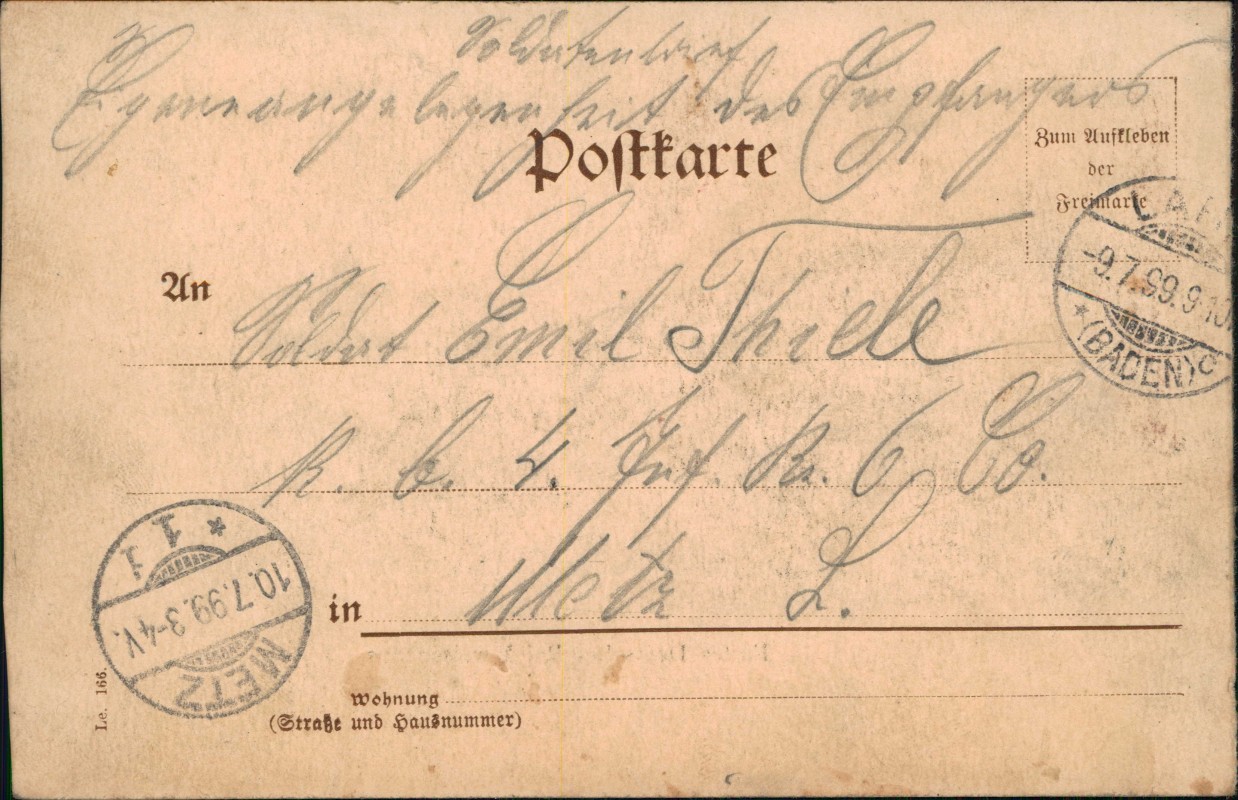 Soldatenbrief
Eigeneangelegenheit des Empfängers
Postkarte
Zum Aufkleben
der
Freimarke
LAH
-9.7.99.9-10
* (BADEN) c
An Soldat Emil Thiele
K. b. 4. Inf. R. 6 Co.
in Metz L.
* 1 1
10.7.99.3-4V.
METZ
Wohnung
(Straße und Hausnummer)
Le. 166.